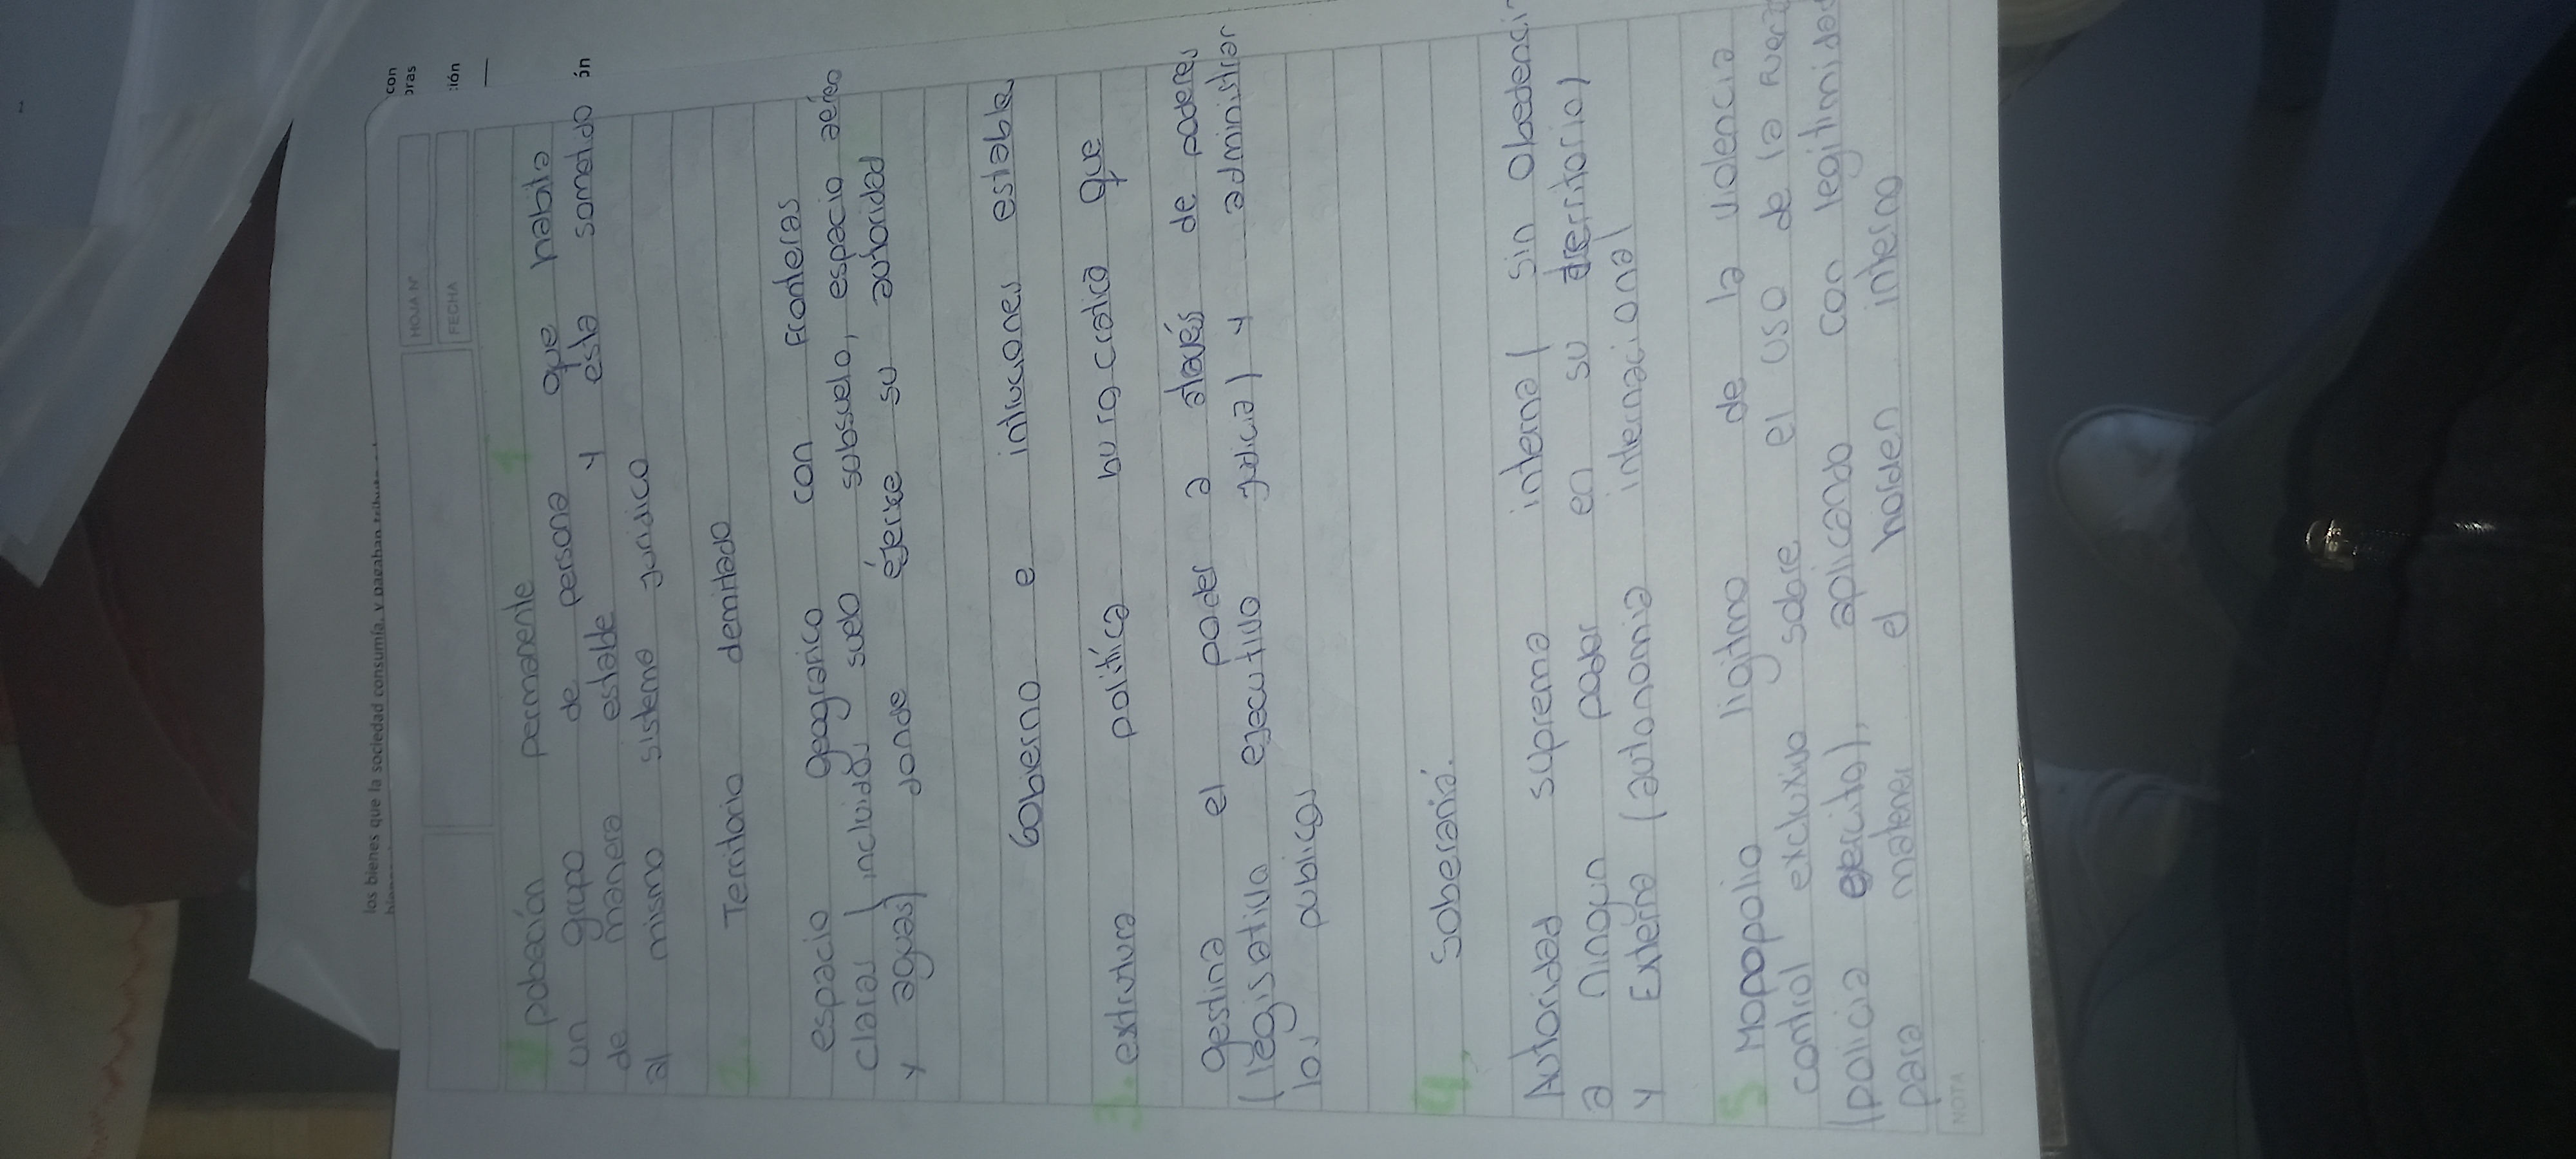 los bienes que la sociedad consumía, y pagaban
con
oras
ión
ón
HOJA N°
FECHA
1 pobación permanente 1
un grupo de persona que habita
de manera estable y esta somatido
al mismo sistema juridico
2. Territorio demitado
espacio geografico con Fronteras
claras (incluidos suelo subsuelo, espacio aéreo
y aguas) donde éjerxe su autoridad
Gobierno e intruciones estable
3. extrutura política burocratica que
gestina el poder a atavés de poderes
(legisativa ejecutivo judicial) y administrar
los publicos
4, Soberania.
Autoridad suprema interna( sin obedenci
a ningun poder en su territorio)
y Externa (autonomia internacional
5 Mopopolio ligitmo de la violencia
control excluxivo sobre el uso de la fuerza
(policia ejercito), aplicando con legitimidad
para matener el horden interno
NOTA